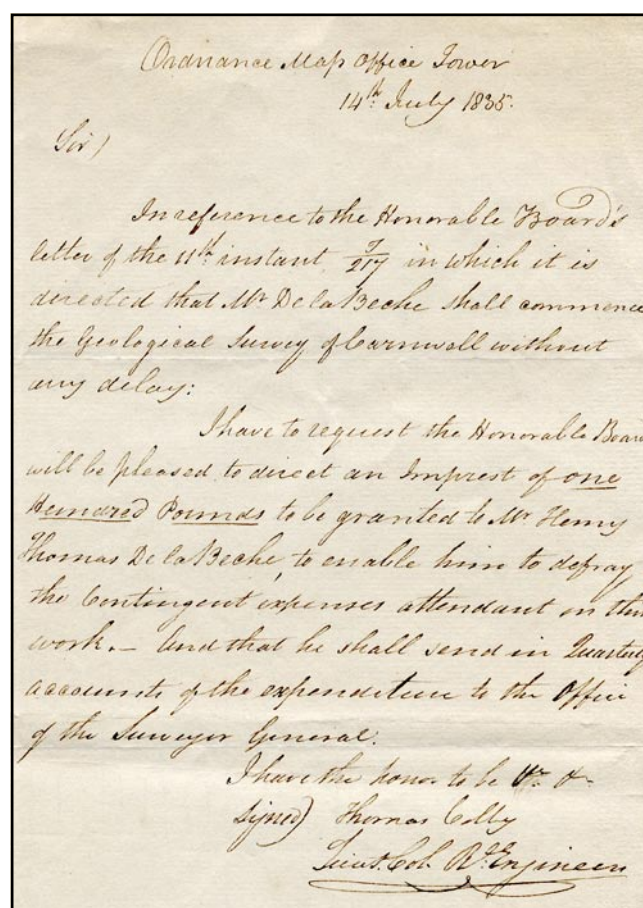 Ordnance Map Office Tower
14th July 1835.
Sir)
In reference to the Honorable Board's
letter of the 11th instant in which it is
directed that Mr De la Beche shall commence
the Geological Survey of Cornwall without
any delay:
I have to request the Honorable Board
will be pleased to direct an Imprest of one
Hundred Pounds to be granted to Mr Henry
Thomas De la Beche, to enable him to defray
the Contingent expenses attendant on this
work. — And that he shall send in Quarterly
accounts of the expenditure to the Office
of the Surveyor General.
I have the honor to be &c &c
Signed) Thomas Colby
Lieut. Col. Rl. Engineers